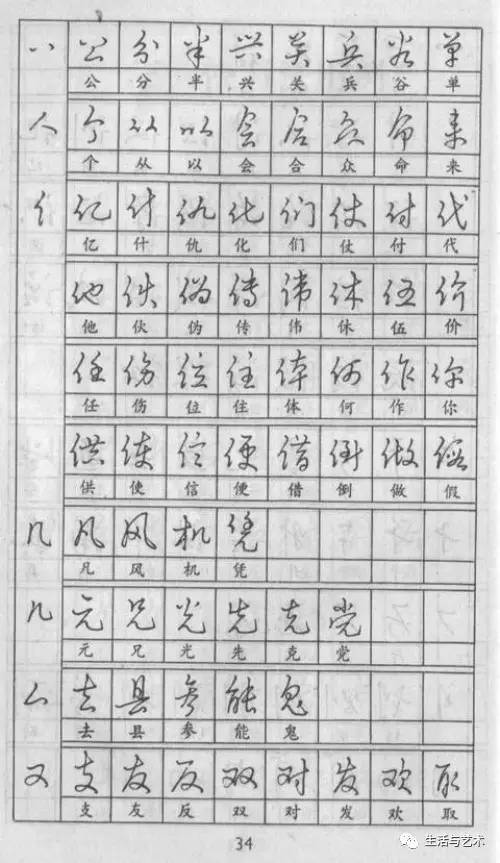 八 公 分 半 兴 关 兵 谷 单
公 分 半 兴 关 兵 谷 单
人 个 从 以 会 合 众 命 来
个 从 以 会 合 众 命 来
亻 亿 什 仇 化 们 仗 付 代
亿 什 仇 化 们 仗 付 代
他 伙 伪 传 伟 休 伍 价
他 伙 伪 传 伟 休 伍 价
任 伤 位 住 体 何 作 你
任 伤 位 住 体 何 作 你
供 使 信 便 借 倒 做 假
供 使 信 便 借 倒 做 假
几 凡 风 机 凭
凡 风 机 凭
儿 元 兄 光 先 克 党
元 兄 光 先 克 党
厶 去 县 参 能 鬼
去 县 参 能 鬼
又 支 友 反 双 对 发 欢 取
支 友 反 双 对 发 欢 取
34
生活与艺术